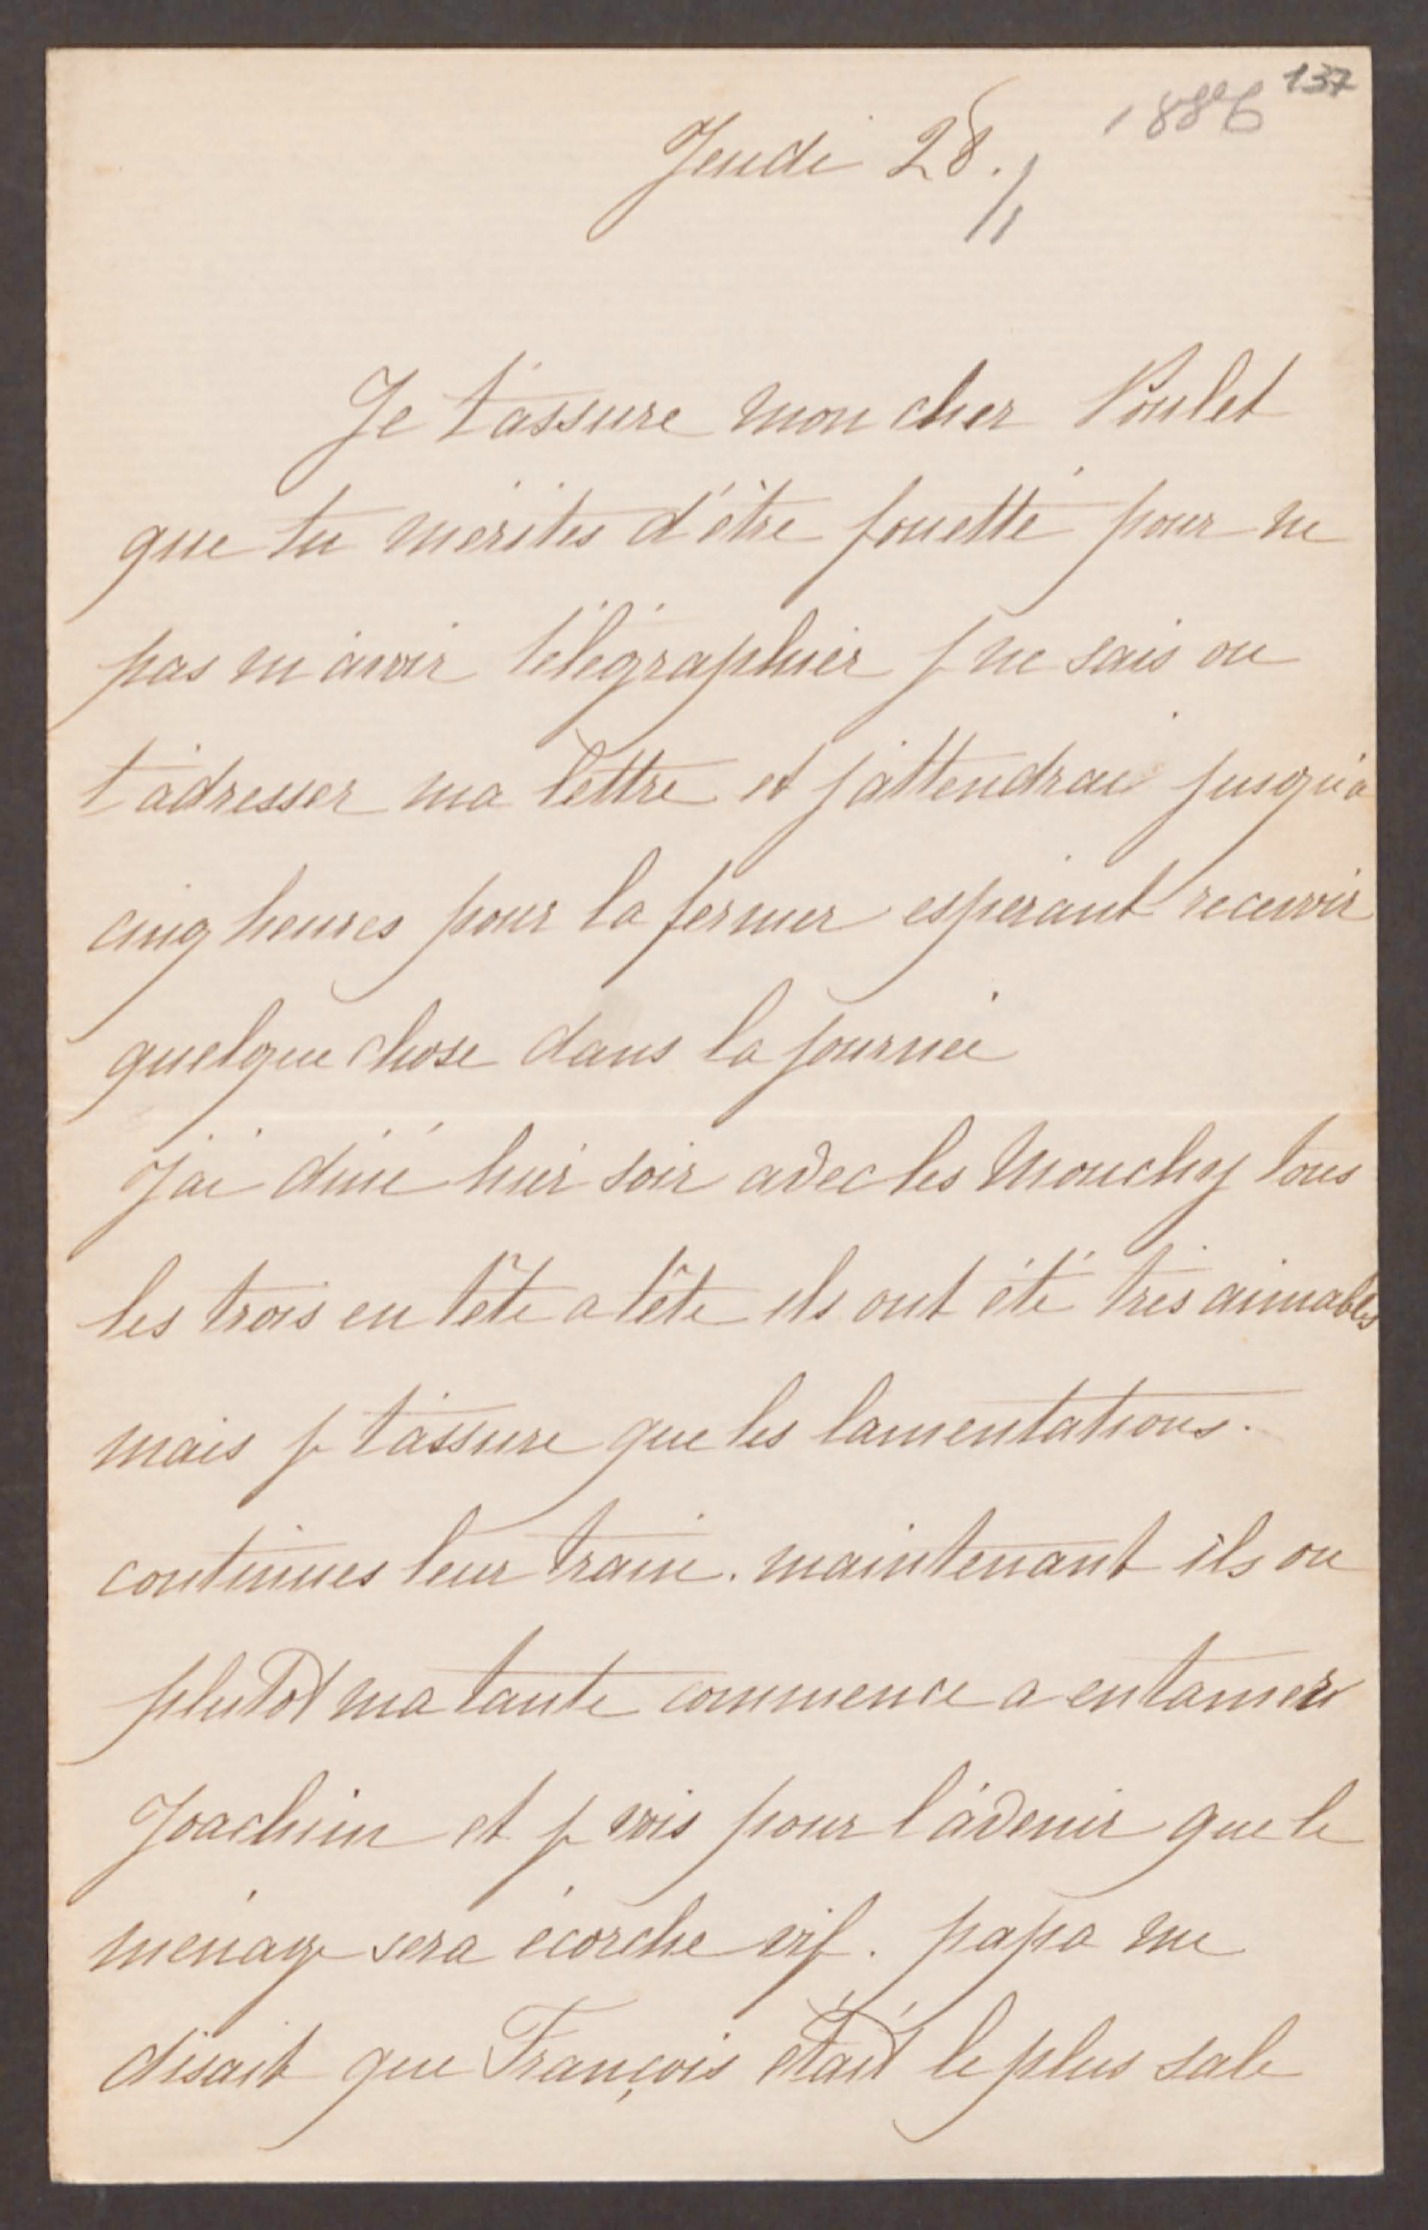 1886 137
Jeudi 28./1
Je t'assure mon cher Poulet
que tu mérites d'être fouetté pour ne
pas m'avoir télégraphier j ne sais ou
t'adresser ma lettre et j'attendrai jusqu'a
cinq heures pour la fermer esperant recevoir
quelque chose dans la journée
J'ai diné hier soir avec les Mouchy tous
les trois en tête a tête ils ont été tres aimables
mais j t'assure que les lamentations.
continues leur train. maintenant ils ou
plutot ma tante commence a entamer
Joachim et j vois pour l'avenir que le
menage sera écorche vif. papa me
disait que François était le plus sale